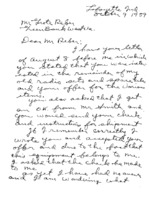 Lafayette Ind
October 9 1959
Mr Grote Reber
Green Bank WestVa.
Dear Mr Reber:
I have your letter
of August 8 before me in which
you stated that you was inter-
ested in the remainder of my
old radio sets and speakers
and your offer for the
items.
you also asked that I get
an OK from Mr Smith and
you would send your check
and instruction for shipment
If I remember correctly I
wrote you and accepted your
offer and due to the fact that
this equipment belongs to me
I asked that the check be made
to me
as yet I have had no answer
and I am wondering what